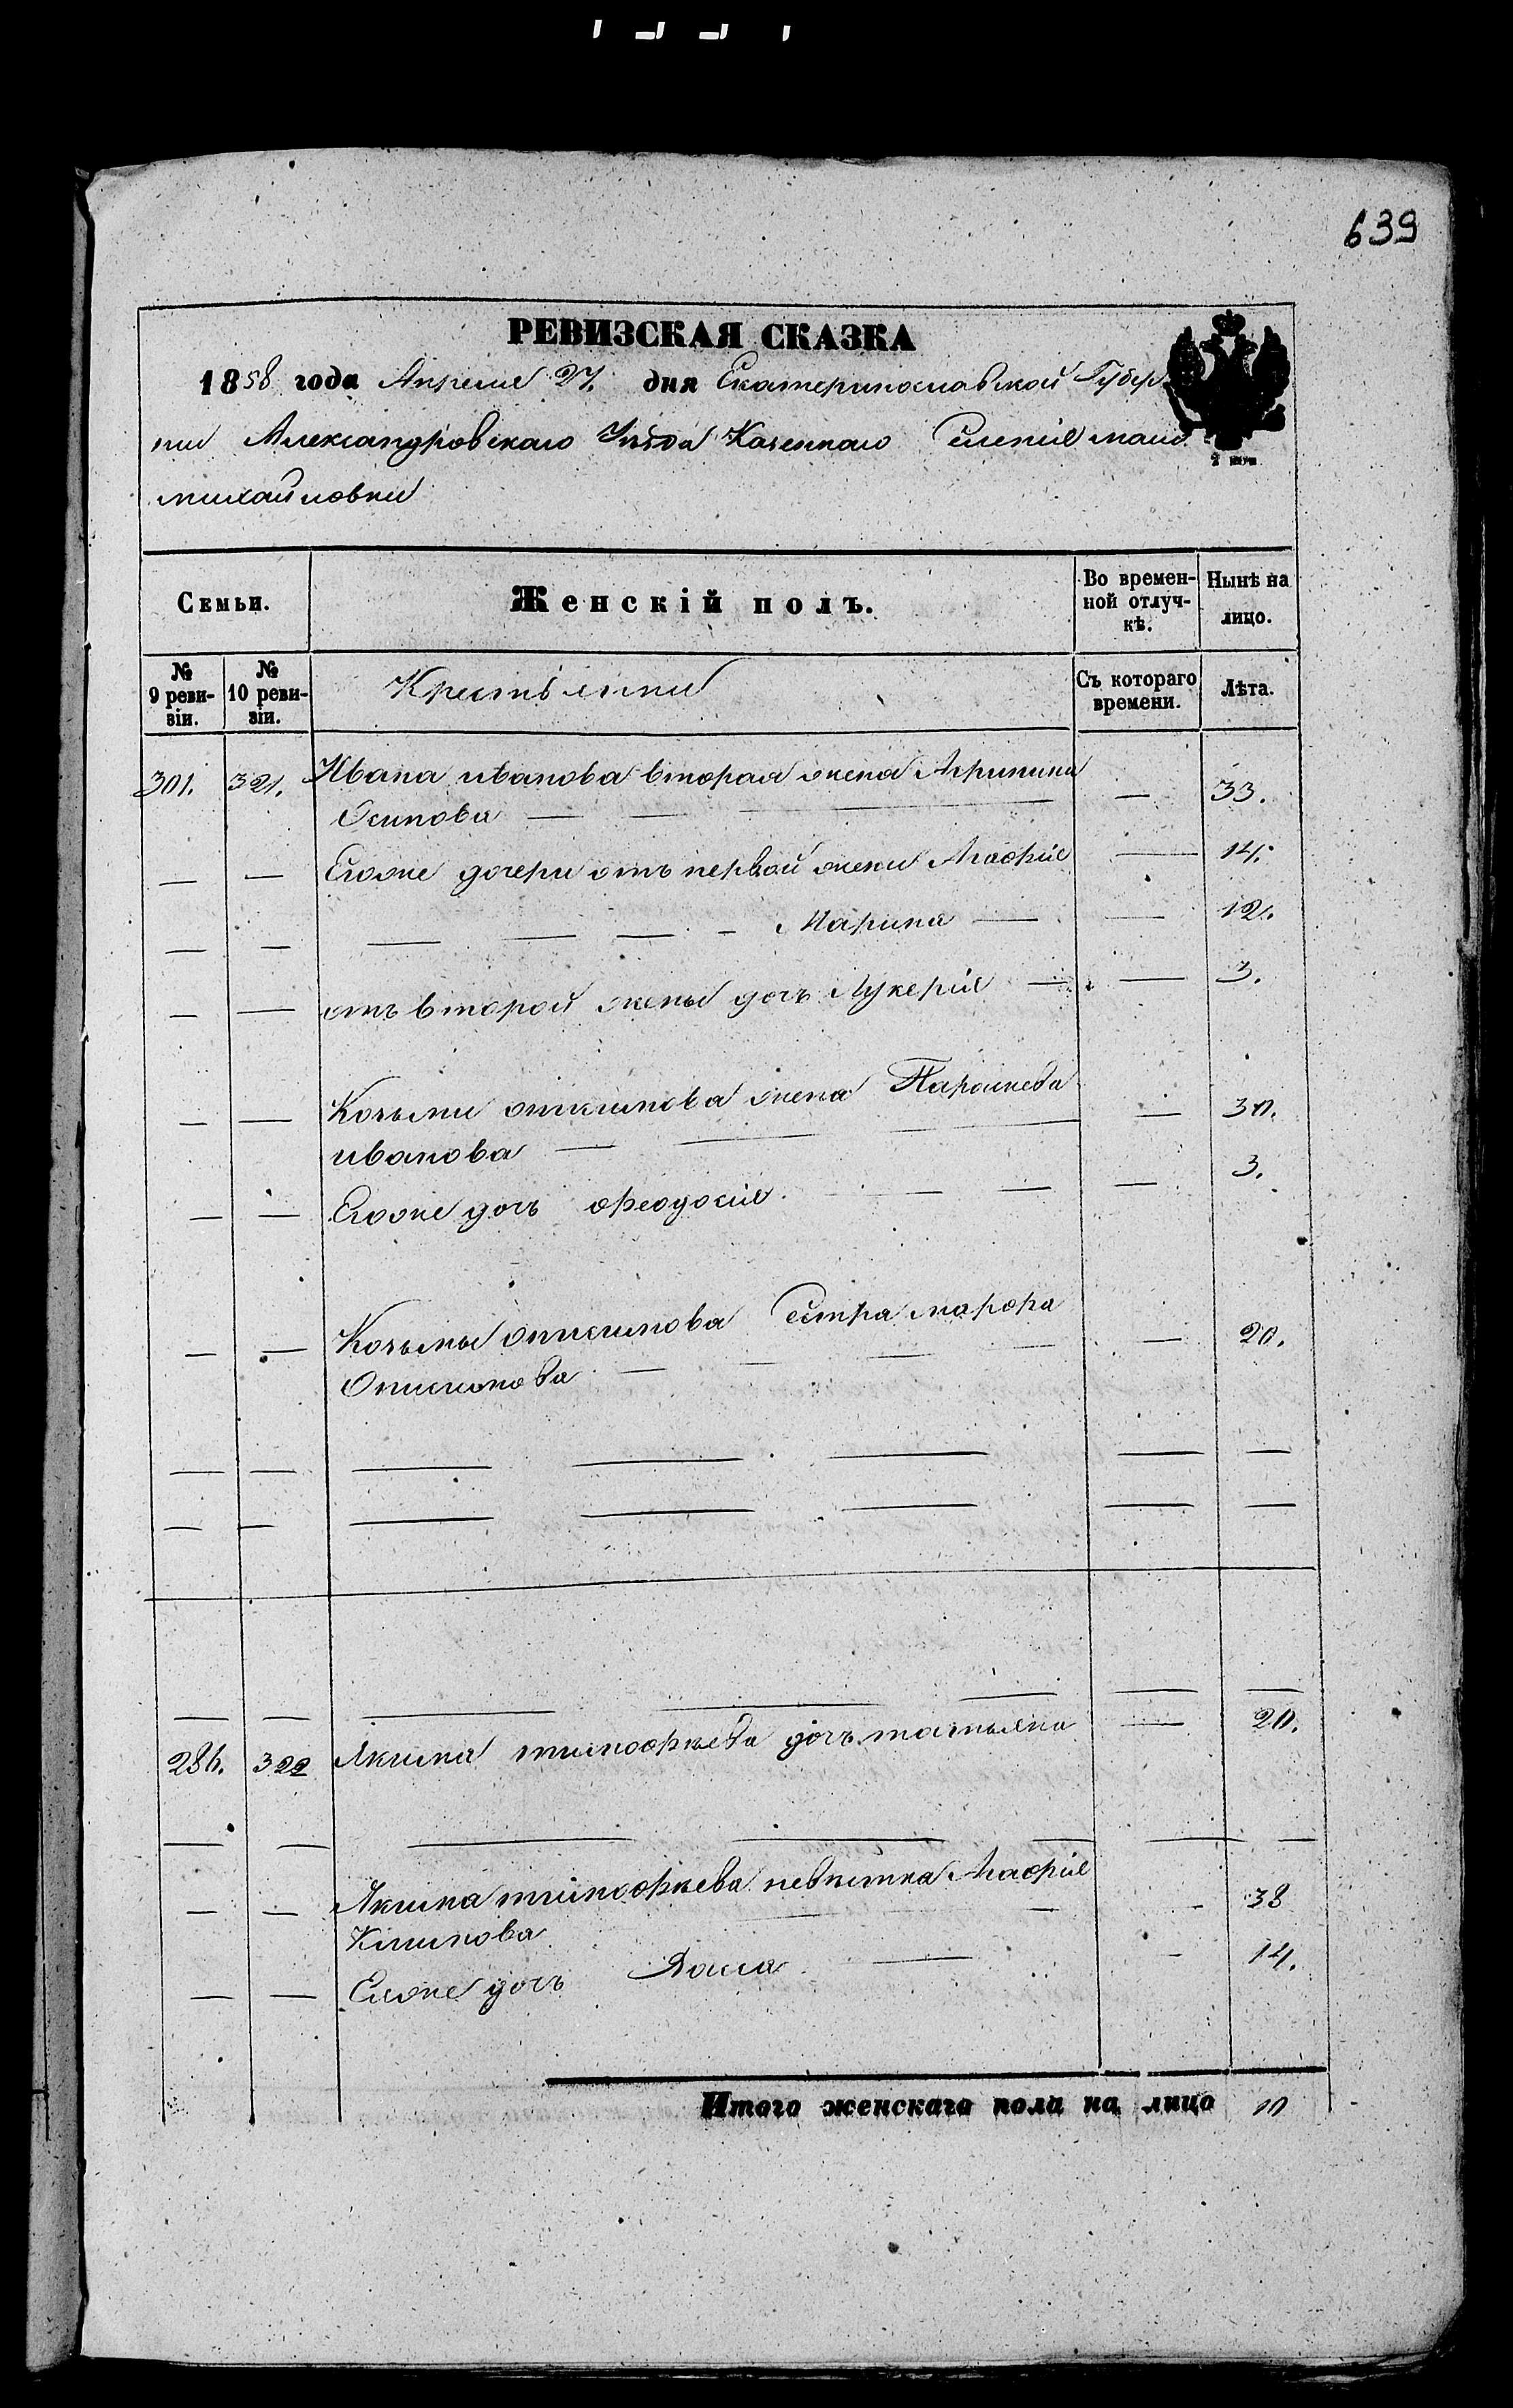 639
РЕВИЗСКАЯ СКАЗКА
1858 года Апреля 27. дня Екатеринославской Губер
нии Александровскаго Уѣзда Казеннаго Селенія мало
михайловки
Семьи.
Женскій полъ.
Во времен-
ной отлуч-
кѣ.
Нынѣ на
лицо.
№
9 реви-
зіи.
№
10 реви-
зіи.
Крестьянки
Съ котораго
времени.
Лѣта.
301. 321. Ивана иванова вторая жена Агрипина — 33.
Осипова — — —
— — Егоже дочери отъ первой жены Агафія — 14.
— — — — — - Марина — — 12.
— — отъ второй жены дочь Лукерія — — 3.
— — Козьмы онисимова жена Параскева — 30.
иванова — — — —
— — Егоже дочь феодосія — — — 3.
— — Козьмы онисимова Сестра марфа — 20.
Онисимова — — — —
— — — — — — —
— — — — — — —
— — — — — — —
286. 322 Якима тимофѣева дочь татьяна — 20.
— — — — — — —
— — Якима тимофѣева невѣстка Агафія - 38
Климова — —
— — Еяже дочь — - 14.
Итого женскаго пола на лицо 10